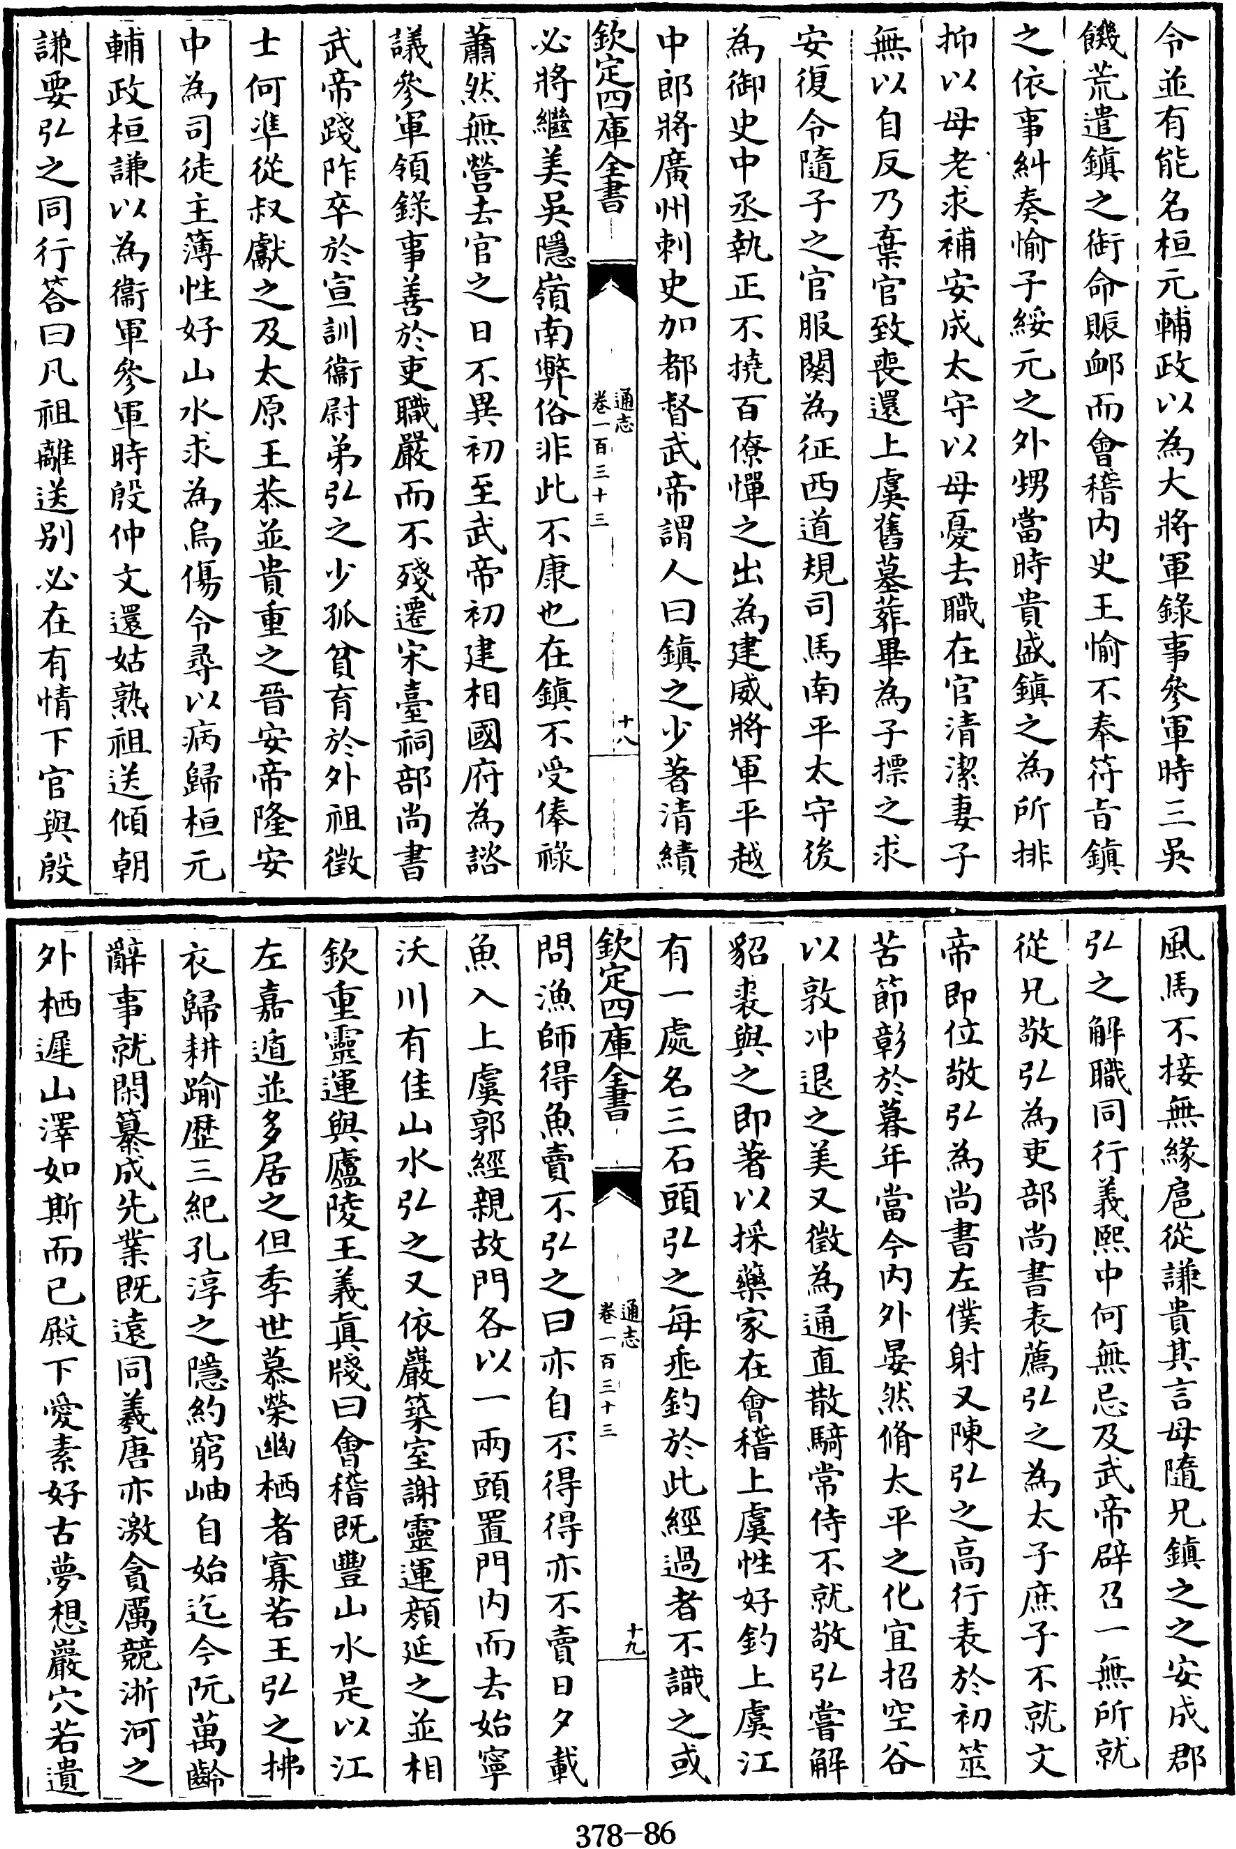 令並有能名桓元輔政以為大將軍錄事參軍時三吳
饑荒遣鎮之銜命賑䘏而會稽内史王愉不奉符旨鎮
之依事糾奏愉子綏元之外甥當時貴盛鎮之為所排
抑以母老求補安成太守以母憂去職在官清潔妻子
無以自反乃棄官致喪還上虞舊墓葬畢為子摽之求
安復令隨子之官服闋為征西道規司馬南平太守後
為御史中丞執正不撓百僚憚之出為建威將軍平越
中郎將廣州刺史加都督武帝謂人曰鎮之少著清績
欽定四庫全書
通志
卷一百三十三
十八
必將繼美吳隱嶺南弊俗非此不康也在鎮不受俸祿
蕭然無營去官之日不異初至武帝初建相國府為諮
議參軍領錄事善於吏職嚴而不殘遷宋臺祠部尚書
武帝踐阼卒於宣訓衞尉弟弘之少孤貧育於外祖徵
士何準從叔獻之及太原王恭並貴重之晉安帝隆安
中為司徒主薄性好山水求為烏傷令尋以病歸桓元
輔政桓謙以為衞軍參軍時殷仲文還姑熟祖送傾朝
謙要弘之同行荅曰凡祖離送别必在有情下官與殷
風馬不接無緣扈從謙貴其言母隨兄鎮之之安成郡
弘之解職同行義熙中何無忌及武帝辟召一無所就
從兄敬弘為吏部尚書表薦弘之為太子庶子不就文
帝即位敬弘為尚書左僕射又陳弘之高行表於初筮
苦節彰於暮年當今内外晏然脩太平之化宜招空谷
以敦冲退之美又徵為通直散騎常侍不就敬弘嘗解
貂裘與之即著以採藥家在會稽上虞性好釣上虞江
有一處名三石頭弘之每垂釣於此經過者不識之或
欽定四庫全書
通志
卷一百三十三
十九
問漁師得魚賣不弘之曰亦自不得得亦不賣日夕載
魚入上虞郭經親故門各以一兩頭置門内而去始寧
沃川有佳山水弘之又依巖築室謝靈運顔延之並相
欽重靈運與廬陵王義真牋曰會稽既豐山水是以江
左嘉遁並多居之但季世慕榮幽栖者寡若王弘之拂
衣歸耕踰歴三紀孔淳之隱約窮岫自始迄今阮萬齡
辭事就閑纂成先業既遠同羲唐亦激貪厲競浙河之
外栖遲山澤如斯而已殿下愛素好古夢想巖穴若遺
378-86